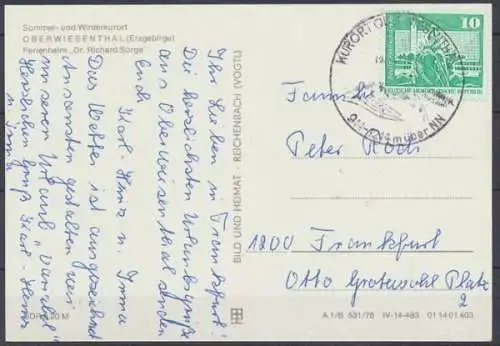 Sommer- und Winterkurort
OBERWIESENTHAL (Erzgebirge)
Ferienheim „Dr. Richard Sorge"
Ihr Lieben in Frankfurt!
Die herzlichsten Urlaubsgrüße
aus Oberwiesenthal senden
Euch
Karl-Heinz u. Irma
Das Wetter ist ausgezeichnet
Ansonsten gestalten wir
unseren Urlaub
Herzlichen Gruß Karl-Heinz
u. Irma
BILD UND HEIMAT REICHENBACH (VOGTL)
KURORT OBERWIESENTHAL
m über NN
10
DEUTSCHE DEMOKRATISCHE REPUBLIK
Familie
Peter
1200 Frankfurt
Otto Grotewohl Platz
2
A 1/B 531/76 IV-14-483 01 14 01 403